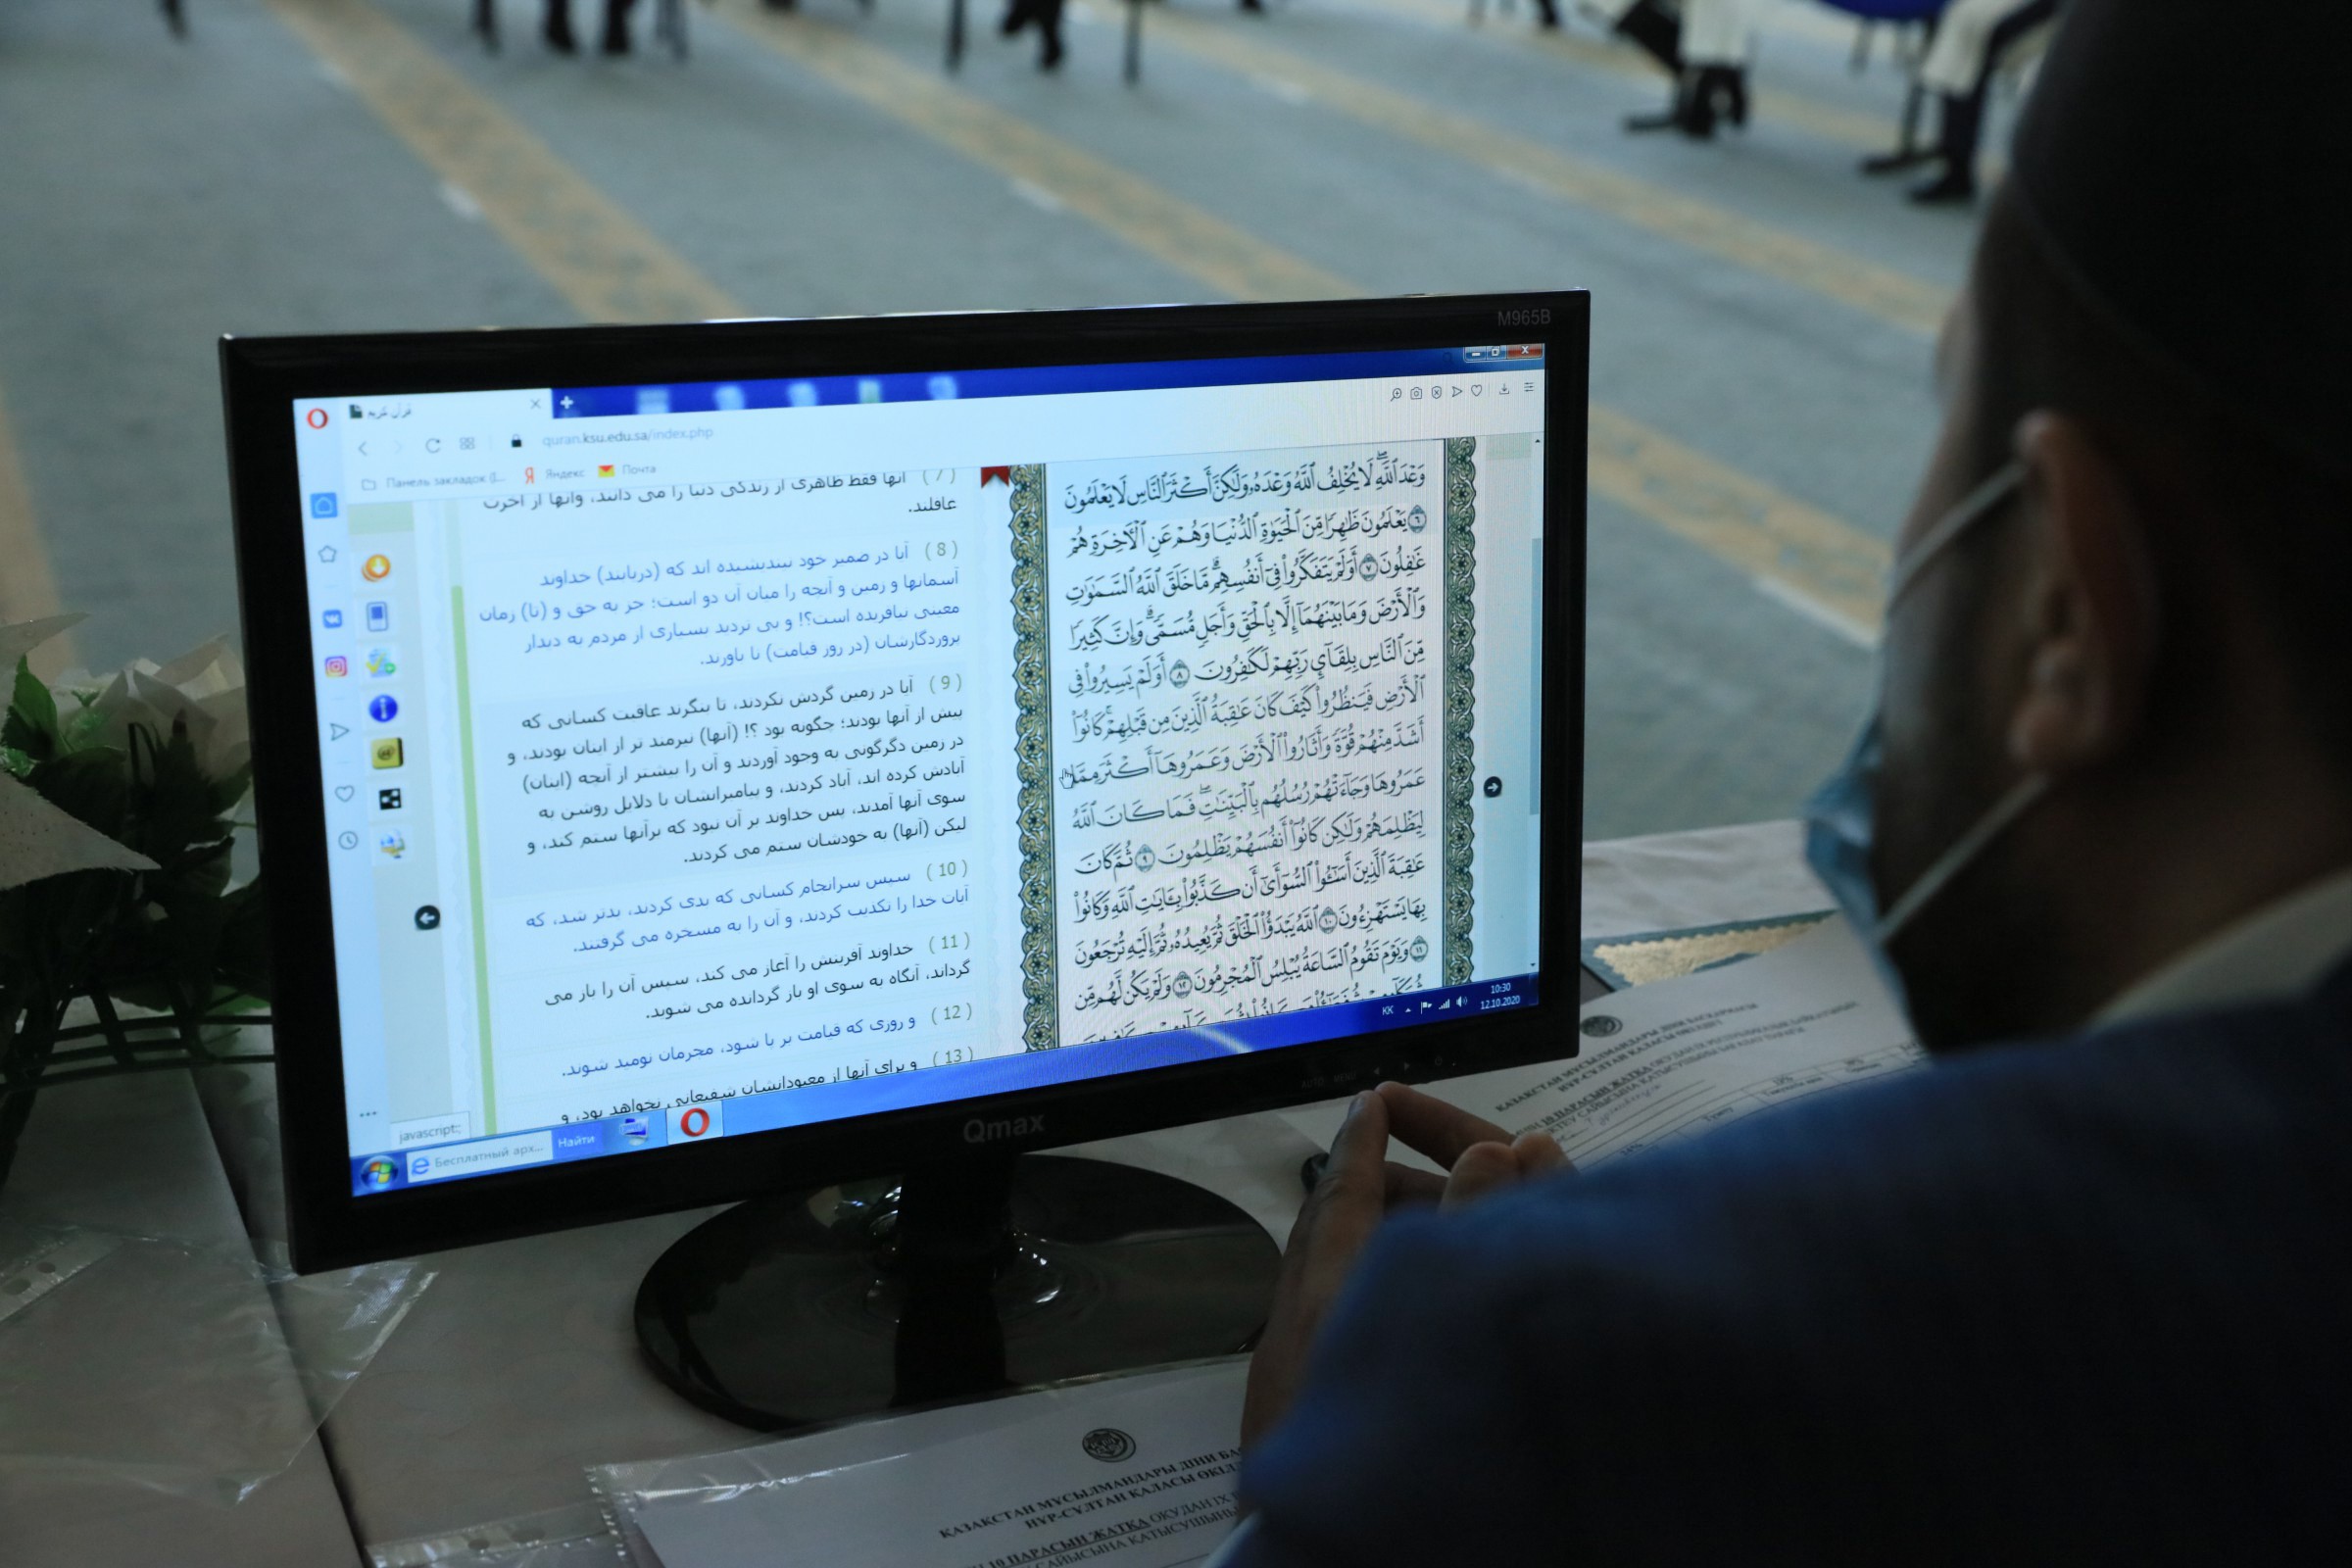 M965B
قرآن كريم
quran.ksu.edu.sa/index.php
Панель закладок (I...
Яндекс
Почта
( 7 ) آنها فقط ظاهری از زندگی دنیا را می دانند، وآنها از آخرت
غافلند.
( 8 ) آیا در ضمیر خود نیندیشیده اند که (دریابند) خداوند
آسمانها و زمین و آنچه را میان آن دو است؛ جز به حق و (تا) زمان
معینی نیافریده است؟! و بی تردید بسیاری از مردم به دیدار
پروردگارشان (در روز قیامت) نا باورند.
( 9 ) آیا در زمین گردش نکردند، تا بنگرند عاقبت کسانی که
پیش از آنها بودند؛ چگونه بود ؟! (آنها) نیرمند تر از اینان بودند، و
در زمین دگرگونی به وجود آوردند و آن را بیشتر از آنچه (اینان)
آبادش کرده اند، آباد کردند، و پیامبرانشان با دلایل روشن به
سوی آنها آمدند، پس خداوند بر آن نبود که برآنها ستم کند، و
لیکن (آنها) به خودشان ستم می کردند.
( 10 ) سپس سرانجام کسانی که بدی کردند، بدتر شد، که
آیات خدا را تکذیب کردند، و آن را به مسخره می گرفتند.
( 11 ) خداوند آفرینش را آغاز می کند، سپس آن را باز می
گرداند، آنگاه به سوی او باز گردانده می شوید.
( 12 ) و روزی که قیامت بر پا شود، مجرمان نومید شوند.
( 13 ) و برای آنها از معبودانشان شفیعانی نخواهد بود، و
وَعْدَ ٱللَّهِ ۖ لَا يُخْلِفُ ٱللَّهُ وَعْدَهُۥ وَلَٰكِنَّ أَكْثَرَ ٱلنَّاسِ لَا يَعْلَمُونَ
٦ يَعْلَمُونَ ظَٰهِرًا مِّنَ ٱلْحَيَوٰةِ ٱلدُّنْيَا وَهُمْ عَنِ ٱلْـَٔاخِرَةِ هُمْ
غَٰفِلُونَ ٧ أَوَلَمْ يَتَفَكَّرُوا۟ فِىٓ أَنفُسِهِم ۗ مَّا خَلَقَ ٱللَّهُ ٱلسَّمَٰوَٰتِ
وَٱلْأَرْضَ وَمَا بَيْنَهُمَآ إِلَّا بِٱلْحَقِّ وَأَجَلٍ مُّسَمًّى ۗ وَإِنَّ كَثِيرًا
مِّنَ ٱلنَّاسِ بِلِقَآئِ رَبِّهِمْ لَكَٰفِرُونَ ٨ أَوَلَمْ يَسِيرُوا۟ فِى
ٱلْأَرْضِ فَيَنظُرُوا۟ كَيْفَ كَانَ عَٰقِبَةُ ٱلَّذِينَ مِن قَبْلِهِمْ ۚ كَانُوٓا۟
أَشَدَّ مِنْهُمْ قُوَّةً وَأَثَارُوا۟ ٱلْأَرْضَ وَعَمَرُوهَآ أَكْثَرَ مِمَّا
عَمَرُوهَا وَجَآءَتْهُمْ رُسُلُهُم بِٱلْبَيِّنَٰتِ ۖ فَمَا كَانَ ٱللَّهُ
لِيَظْلِمَهُمْ وَلَٰكِن كَانُوٓا۟ أَنفُسَهُمْ يَظْلِمُونَ ٩ ثُمَّ كَانَ
عَٰقِبَةَ ٱلَّذِينَ أَسَٰٓـُٔوا۟ ٱلسُّوٓأَىٰٓ أَن كَذَّبُوا۟ بِـَٔايَٰتِ ٱللَّهِ وَكَانُوا۟
بِهَا يَسْتَهْزِءُونَ ١٠ ٱللَّهُ يَبْدَؤُا۟ ٱلْخَلْقَ ثُمَّ يُعِيدُهُۥ ثُمَّ إِلَيْهِ تُرْجَعُونَ
١١ وَيَوْمَ تَقُومُ ٱلسَّاعَةُ يُبْلِسُ ٱلْمُجْرِمُونَ ١٢ وَلَمْ يَكُن لَّهُم مِّن
javascript:;
Бесплатный арх...
Найти
KK
10:30
12.10.2020
AUTO MENU
Qmax
ҚАЗАҚСТАН МҰСЫЛМАНДАРЫ ДІНИ БАСҚАРМАСЫ
НҰР-СҰЛТАН ҚАЛАСЫ ӨКІЛДІГІ
10 ПАРАСЫН ЖАТҚА ОҚУДАН IX РЕСПУБЛИКАЛЫҚ
ҚАЗАҚСТАН МҰСЫЛМАНДАРЫ ДІНИ БАС
НҰР-СҰЛТАН ҚАЛАСЫ ӨКІЛ
10 ПАРАСЫН ЖАТҚА ОҚУДАН IX
САЙЫСЫНА ҚАТЫСУШЫНЫ